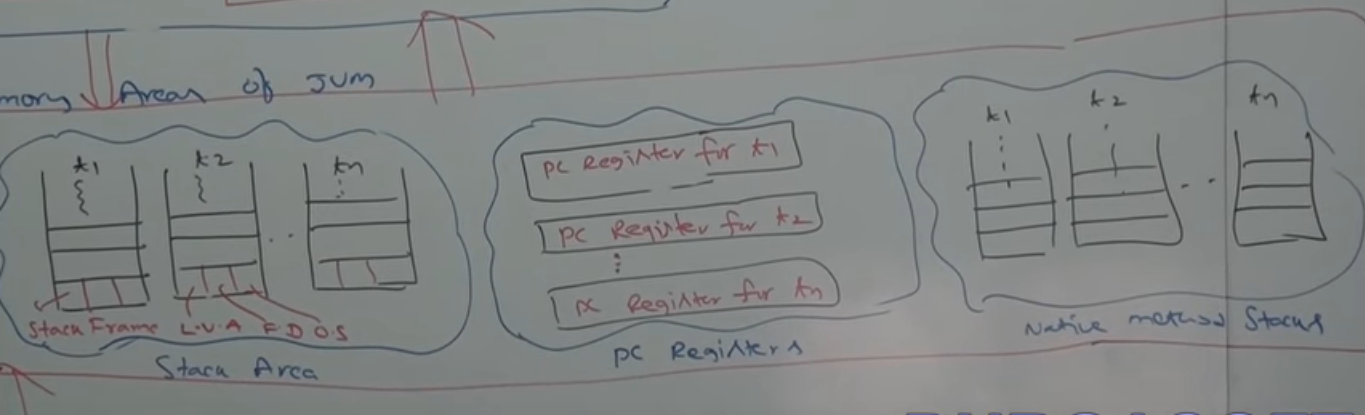 mory Areas of JVM
t1
t2
tn
Stack Frame
L.V.A
F.D
O.S
Stack Area
PC Register for t1
PC Register for t2
PC Register for tn
PC Registers
t1
t2
tn
Native method Stacks